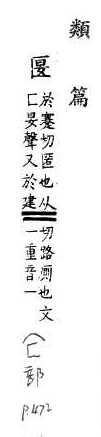 類篇
匽
於蹇切匿也从
匚妟聲又於建
切路廁也文
一重音一
(匚部
P.472